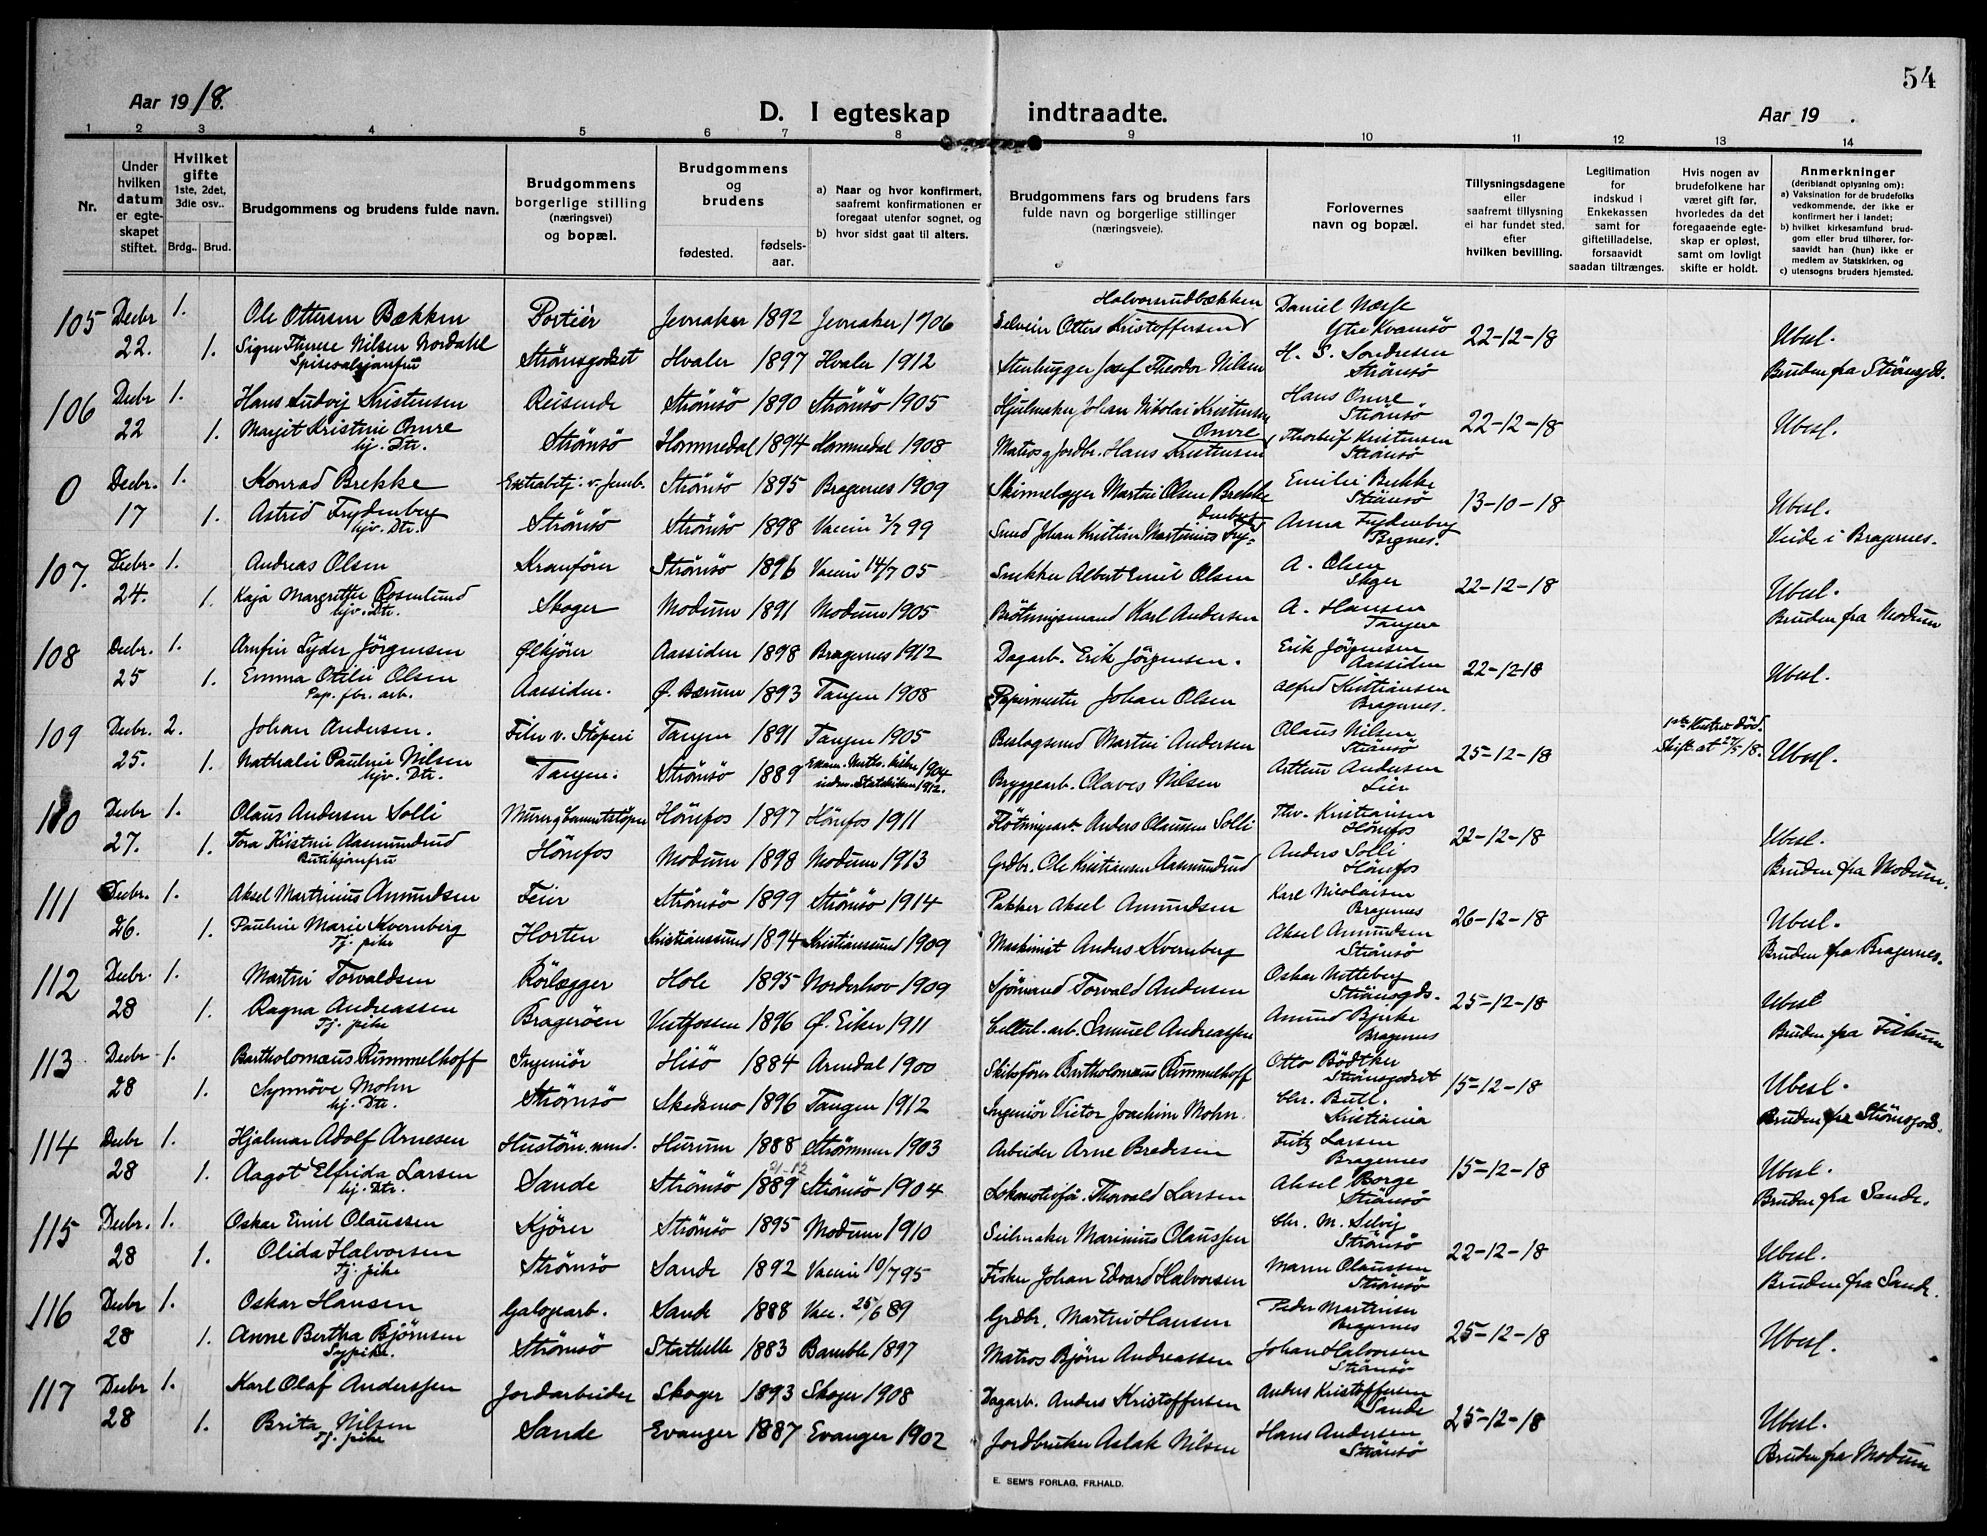 54
Aar 1918.
D. I egteskap indtraadte.
Aar 19 .
1 2 3 4 5 6 7 8 9 10 11 12 13 14
Nr.
Under hvilken datum er egteskapet stiftet.
Hvilket gifte 1ste, 2det, 3die osv..
Brdg.. Brud.
Brudgommens og brudens fulde navn.
Brudgommens borgerlige stilling (næringsvei) og bopæl.
Brudgommens og brudens
fødested. fødsels-aar.
a) Naar og hvor konfirmert, saafremt konfirmationen er foregaat utenfor sognet, og
b) hvor sidst gaat til alters.
Brudgommens fars og brudens fars fulde navn og borgerlige stillinger (næringsveie).
Forlovernes navn og bopæl.
Tillysningsdagene eller saafremt tillysning ei har fundet sted. efter hvilken bevilling.
Legitimation for indskud i Enkekassen samt for giftetilladelse, forsaavidt saadan tiltrænges.
Hvis nogen av brudefolkene har været gift før, hvorledes da det foregaaende egteskap er opløst, samt om lovlig skifte er holdt.
Anmerkninger (deriblandt oplysning om):
a) Vaksination for de brudefolks vedkommende, der ikke er konfirmert her i landet;
b) hvilket kirkesamfund brudgom eller brud tilhører, forsaavidt han (hun) ikke er medlem av Statskirken, og
c) utensogns bruders hjemsted.
Halvorsrudbækken
105 Decbr 1. Ole Ottersen Bækken Portiér Jevnaker 1892 Jevnaker 1906 Selveier Otters Kristoffersen Daniel Næsje Ytre Kvamsö 22-12-18 Ubesl.
22. 1. Signe Therese Nilsen Nordahl Strömsgodset Hvaler 1897 Hvaler 1912 Stenhugger Josef Theodor Nilsen H. S. Sondresen Strömsö Bruden fra Strömsgds.
106 Decbr 1. Hans Ludvig Kristensen Reisende Strömsö 1890 Strömsö 1905 Hjulmaker Johan Nikolai Kristensen Hans Omre Strömsö 22-12-18 Ubesl.
22 1. Margit Kristine Omre hj. Dtr. Strömsö Hommedal 1894 Hommedal 1908 Matros g Jordbr. Hans Kristensen Omre Thorleif Kristensen Strömsö
0 Decbr. 1. Konrad Brekke Extrabetj. v. Jernb. Strömsö 1895 Bragernes 1909 Skinnelægger Martin Olsen Brekke Emilie Brekke Strömsö 13-10-18 Ubesl.
17 1. Astrid Frydenberg hjv. Dtr. Strömsö Strömsö 1898 Vaccin 2/7 99 Smed Johan Kristian Martinius Frydenberg Anna Frydenberg Brgnes. Viede i Bragernes.
107. Decbr. 1. Andreas Olsen Kranförer Strömsö 1896 Vaccin 14/7 05 Snekker Albert Emil Olsen A. Olsen Skoger 22-12-18 Ubesl.
24. 1. Kaja Margrethe Rosenlund hjv. Dtr. Skoger Modum 1891 Modum 1905 Brötningsmand Karl Andersen A. Hansen Tangen Bruden fra Modum
108 Decbr. 1. Arnfin Lyder Jörgensen Ølkjörer Aassiden 1898 Bragernes 1912 Dagarb. Erik Jörgensen. Erik Jörgensen Aassiden 22-12-18 Ubesl.
25 1. Emma Otilie Olsen Pap. fbr. arb. Aassiden. Ø. Bærum 1893 Tangen 1908 Papirmester Johan Olsen Alfred Kristiansen Bragernes.
109 Decbr. 2. Johan Andersen. Filer v. Stöperi Tangen 1891 Tangen 1905 Beslagsmed Martin Andersen Olaus Nilsen Strömsö 25-12-18 1ste Hustru död. Skifteat 27/5 18. Ubesl.
25. 1. Nathalie Pauline Nilsen hjv. Dtr. Tangen. Strömsö 1889 Exam. Meth. kirke 1904 indm. Statskirken 1912. Bryggearb. Olaves Nilsen Arthur Andersen Lier
110 Decbr 1. Olaus Andersen Solli Murer g Cementstöper Hönefos 1897 Hönefos 1911 Flötningsarb. Anders Olausen Solli Thv. Kristiansen Hönefos 22-12-18 Ubesl.
27. 1. Tora Kristine Aasmundrud Butikjomfru Hönefos Modum 1898 Modum 1913 Grdbr. Ole Kristiansen Aasmundrud Anders Solli Hönefos Bruden fra Modum.
111 Decbr. 1. Aksel Martinius Amundsen Feier Strömsö 1899 Strömsö 1914 Pakker Aksel Amundsen Karl Nicolaisen Bragernes 26-12-18 Ubesl.
26. 1. Pauline Marie Kvernberg Tj. pike Horten Kristianssund 1894 Kristianssund 1909 Maskinist Anders Kvernberg Aksel Amundsen Strömsö Bruden fra Bragernes.
112 Decbr. 1. Martin Torvaldsen Rörlægger Hole 1895 Norderhov 1909 Sjömand Torvald Andersen Oskar Netteberg Strömsgds. 25-12-18 Ubesl
28 1. Ragna Andreassen Tj. pike Bragerøen Vestfossen 1896 Ø. Eiker 1911 Cellul. arb. Samuel Andreassen Amund Bjerke Bragernes Bruden fra Fiskum
113 Decbr 1. Bartholomæus Rummelhoff Ingeniør Hisö 1884 Arendal 1900 Skibsfører Bartholomæus Rummelhoff Otto Bödtker Strömsgodset 15-12-18 Ubesl.
28 1. Synnöve Mohn hj. Dtr. Strömsö Skedsmo 1896 Tangen 1912 Ingeniör Victor Joachim Mohn. Chr. Bull. Kristiania Bruden fra Strömsgods.
114 Decbr 1. Hjalmar Adolf Arnesen Hustöm.mand. Hurum 1888 Strömmen 1903 Arbeider Arne Bredesen Fritz Larsen Bragernes 15-12-18 Ubesl.
28 1. Aagot Elfrida Larsen hj. Dtr. Sande Strömsö 21-12 1889 Strömsö 1904 Lokomotivfö. Thorvald Larsen Aksel Borge Strömsö Bruden fra Sande.
115 Decbr. 1. Oskar Emil Olaussen Kjörer Strömsö 1895 Modum 1910 Seilmaker Marinius Olaussen Chr. M. Selvig Strömsö 22-12-18 Ubesl.
28 1. Olida Halvorsen Tj. pike Strömsö Sande 1892 Vaccin 10/7 95 Fisker Johan Edvard Halvorsen Marm Olaussen Strömsö Bruden fra Sande.
116 Decbr 1. Oskar Hansen Galogearb. Sande 1888 Vacc. 25/6 89 Grdbr. Martin Hansen Peder Martinsen Bragernes 25-12-18 Ubesl.
28 1. Anne Bertha Bjørnsen Sypike. Strömsö Stathelle 1883 Bamble 1897 Matros Bjørn Andreassen Johan Halvorsen Strömsö
117 Decbr 1. Karl Olaf Anderssen Jordarbeider Skoger 1893 Skoger 1908 Dagarb. Anders Kristoffersen Anders Kristoffersen Sande 25-12-18 Ubesl.
28 1. Brita Nilsen Tj. pike Sande Evanger 1887 Evanger 1902 Jordbruker Aslak Nilsen Hans Andersen Strömsö Bruden fra Modum
E. SEM'S FORLAG, FR.HALD.